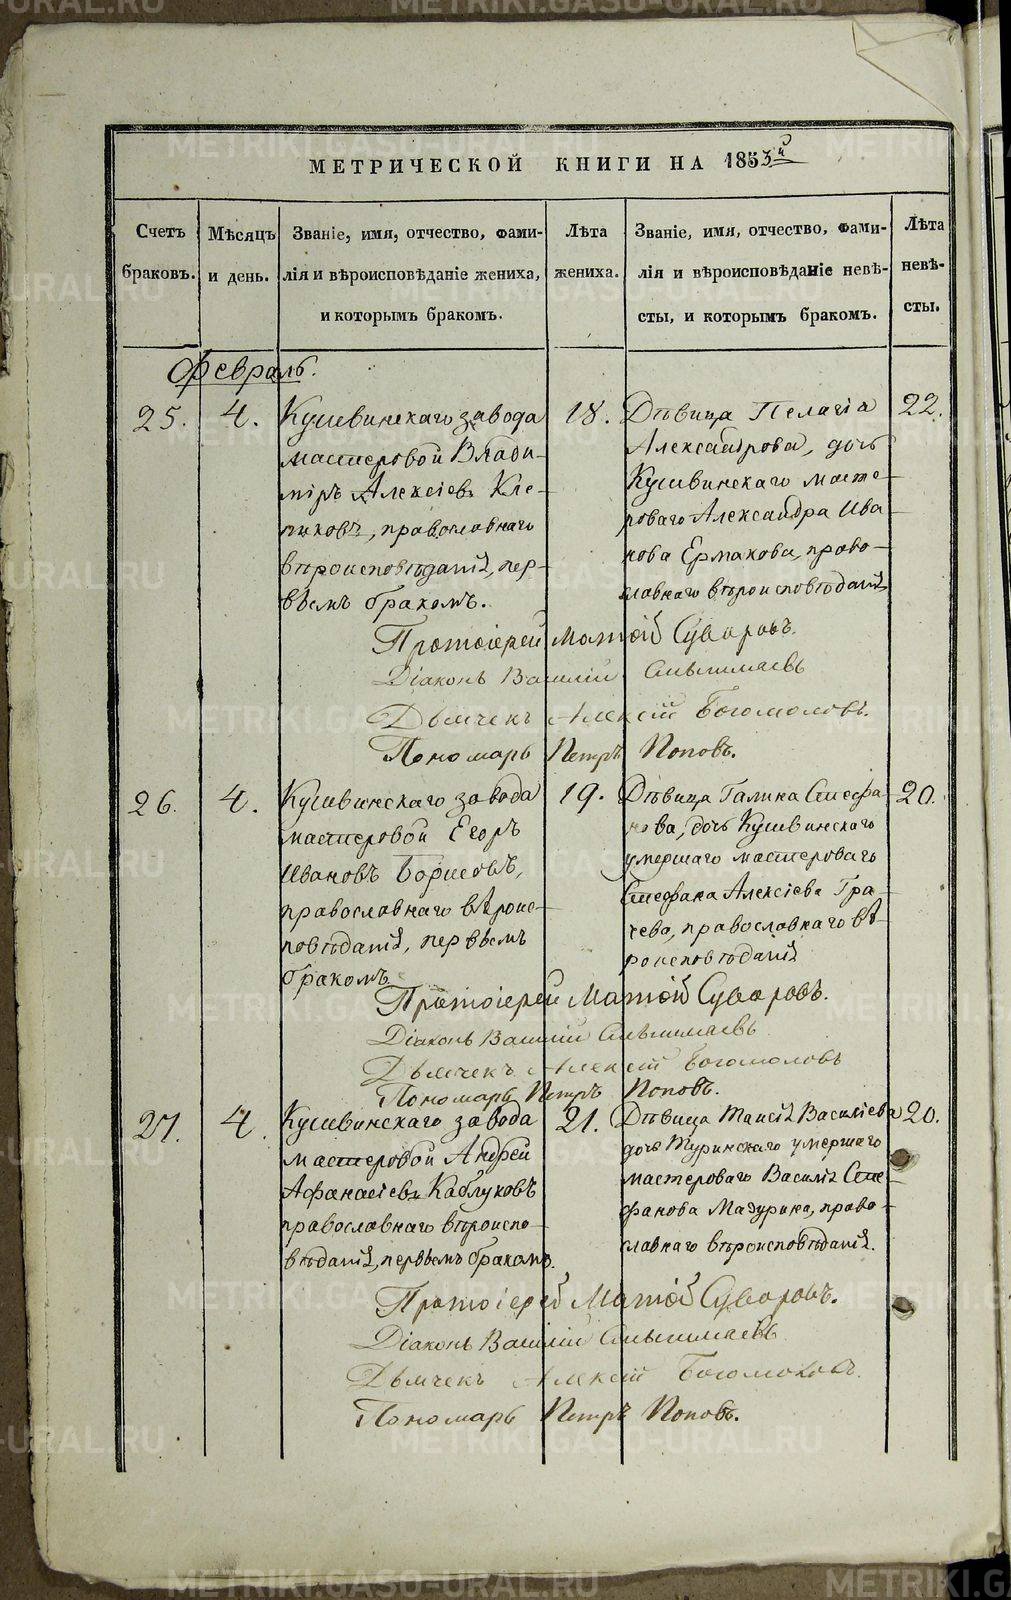 МЕТРИЧЕСКОЙ КНИГИ НА 1853й
Счетъ браковъ.
Мѣсяцъ и день.
Званіе, имя, отчество, фами-
лія и вѣроисповѣданіе жениха,
и которымъ бракомъ.
Лѣта жениха.
Званіе, имя, отчество, фами-
лія и вѣроисповѣданіе невѣ-
сты, и которымъ бракомъ.
Лѣта невѣ-
сты.
Февраль.
25.
4.
Кушвинскаго завода
мастеровой Влади-
міръ Алексіевъ Кле-
пиковъ, православнаго
вѣроисповѣданія, пер-
вымъ бракомъ.
18.
Дѣвица Пелагія
Александрова, дочь
Кушвинскаго масте-
роваго Александра Ива-
нова Ермакова, право-
славнаго вѣроисповѣданія
22.
Протоіерей Матѳій Суворовъ.
Діаконъ Василій
Дьячекъ Алексій Богомоловъ.
Пономарь Петръ Поповъ.
26.
4.
Кушвинскаго завода
мастеровой Егоръ
Ивановъ Борисовъ,
православнаго вѣроис-
повѣданія, первымъ
бракомъ.
19.
Дѣвица Галина Стефа
нова, дочь Кушвинскаго
умершаго мастероваго
Стефана Алексіева Гра-
чева, православнаго вѣ-
роисповѣданія
20.
Протоіерей Матѳій Суворовъ.
Діаконъ Василій
Дьячекъ Алексій Богомоловъ
Пономарь Петръ Поповъ.
27.
4.
Кушвинскаго завода
мастеровой Андрей
Афанасіевъ Каблуковъ
православнаго вѣроиспо-
вѣданія, первымъ бракомъ.
21.
Дѣвица Таисія Василіева
дочь Туринскаго умершаго
мастероваго Василія Сте-
фанова Мазурина, право-
славнаго вѣроисповѣданія.
20.
Протоіерей Матѳій Суворовъ.
Діаконъ Василій
Дьячекъ Алексій Богомоловъ.
Пономарь Петръ Поповъ.
METRIKI.GASO-URAL.RU